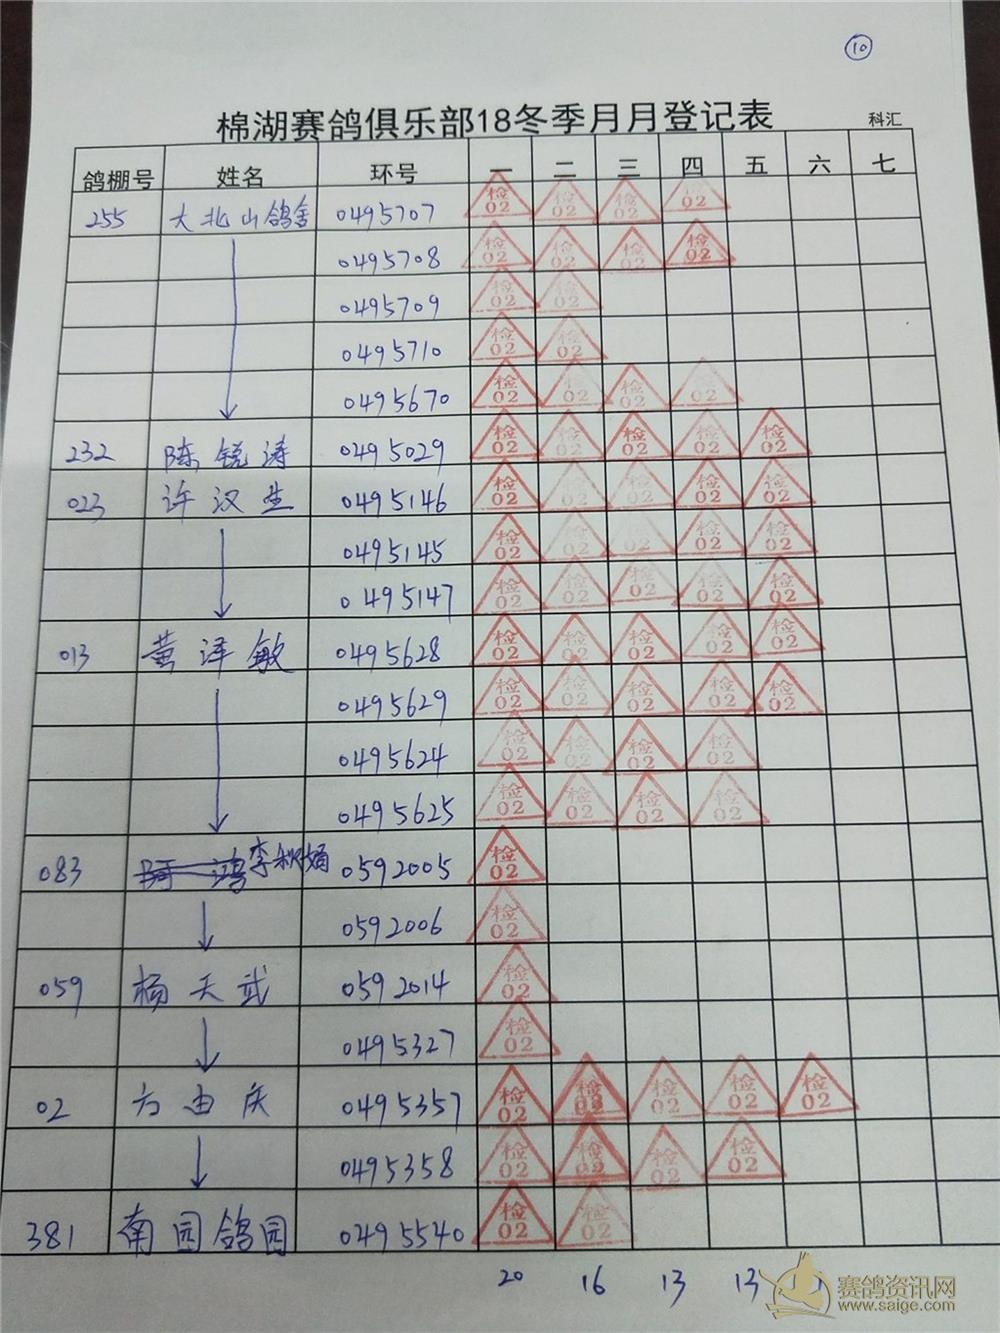 10
棉湖赛鸽俱乐部18冬季月月登记表
科汇
鸽棚号 姓名 环号 一 二 三 四 五 六 七
255 大北山鸽舍 0495707 检02 检02 检02 检02
0495708 检02 检02 检02 检02
0495709 检02 检02
0495710 检02 检02
0495670 检02 检02 检02 02
232 陈锐涛 0495029 检02 检02 检02 检02 检02
023 许汉生 0495146 检02 检02 检02 检02 检02
0495145 检02 检02 检02 检02 检02
0495147 检02 检02 检02 检02 检02
013 黄泽敏 0495628 检02 检02 检02 检02 检02
0495629 检02 检02 检02 检02 检02
0495624 检02 检02 检02 检02
0495625 检02 检02 检02 检02
083 李秋娟 0592005 检02
0592006 检02
059 杨天武 0592014 检02
0495327 检02
02 方由庆 0495357 检02 检02 检02 检02 检02
0495358 检02 检02 检02 检02
381 南园鸽园 0495540 检02 检02
20 16 13 13
赛鸽资讯网
www.saige.com